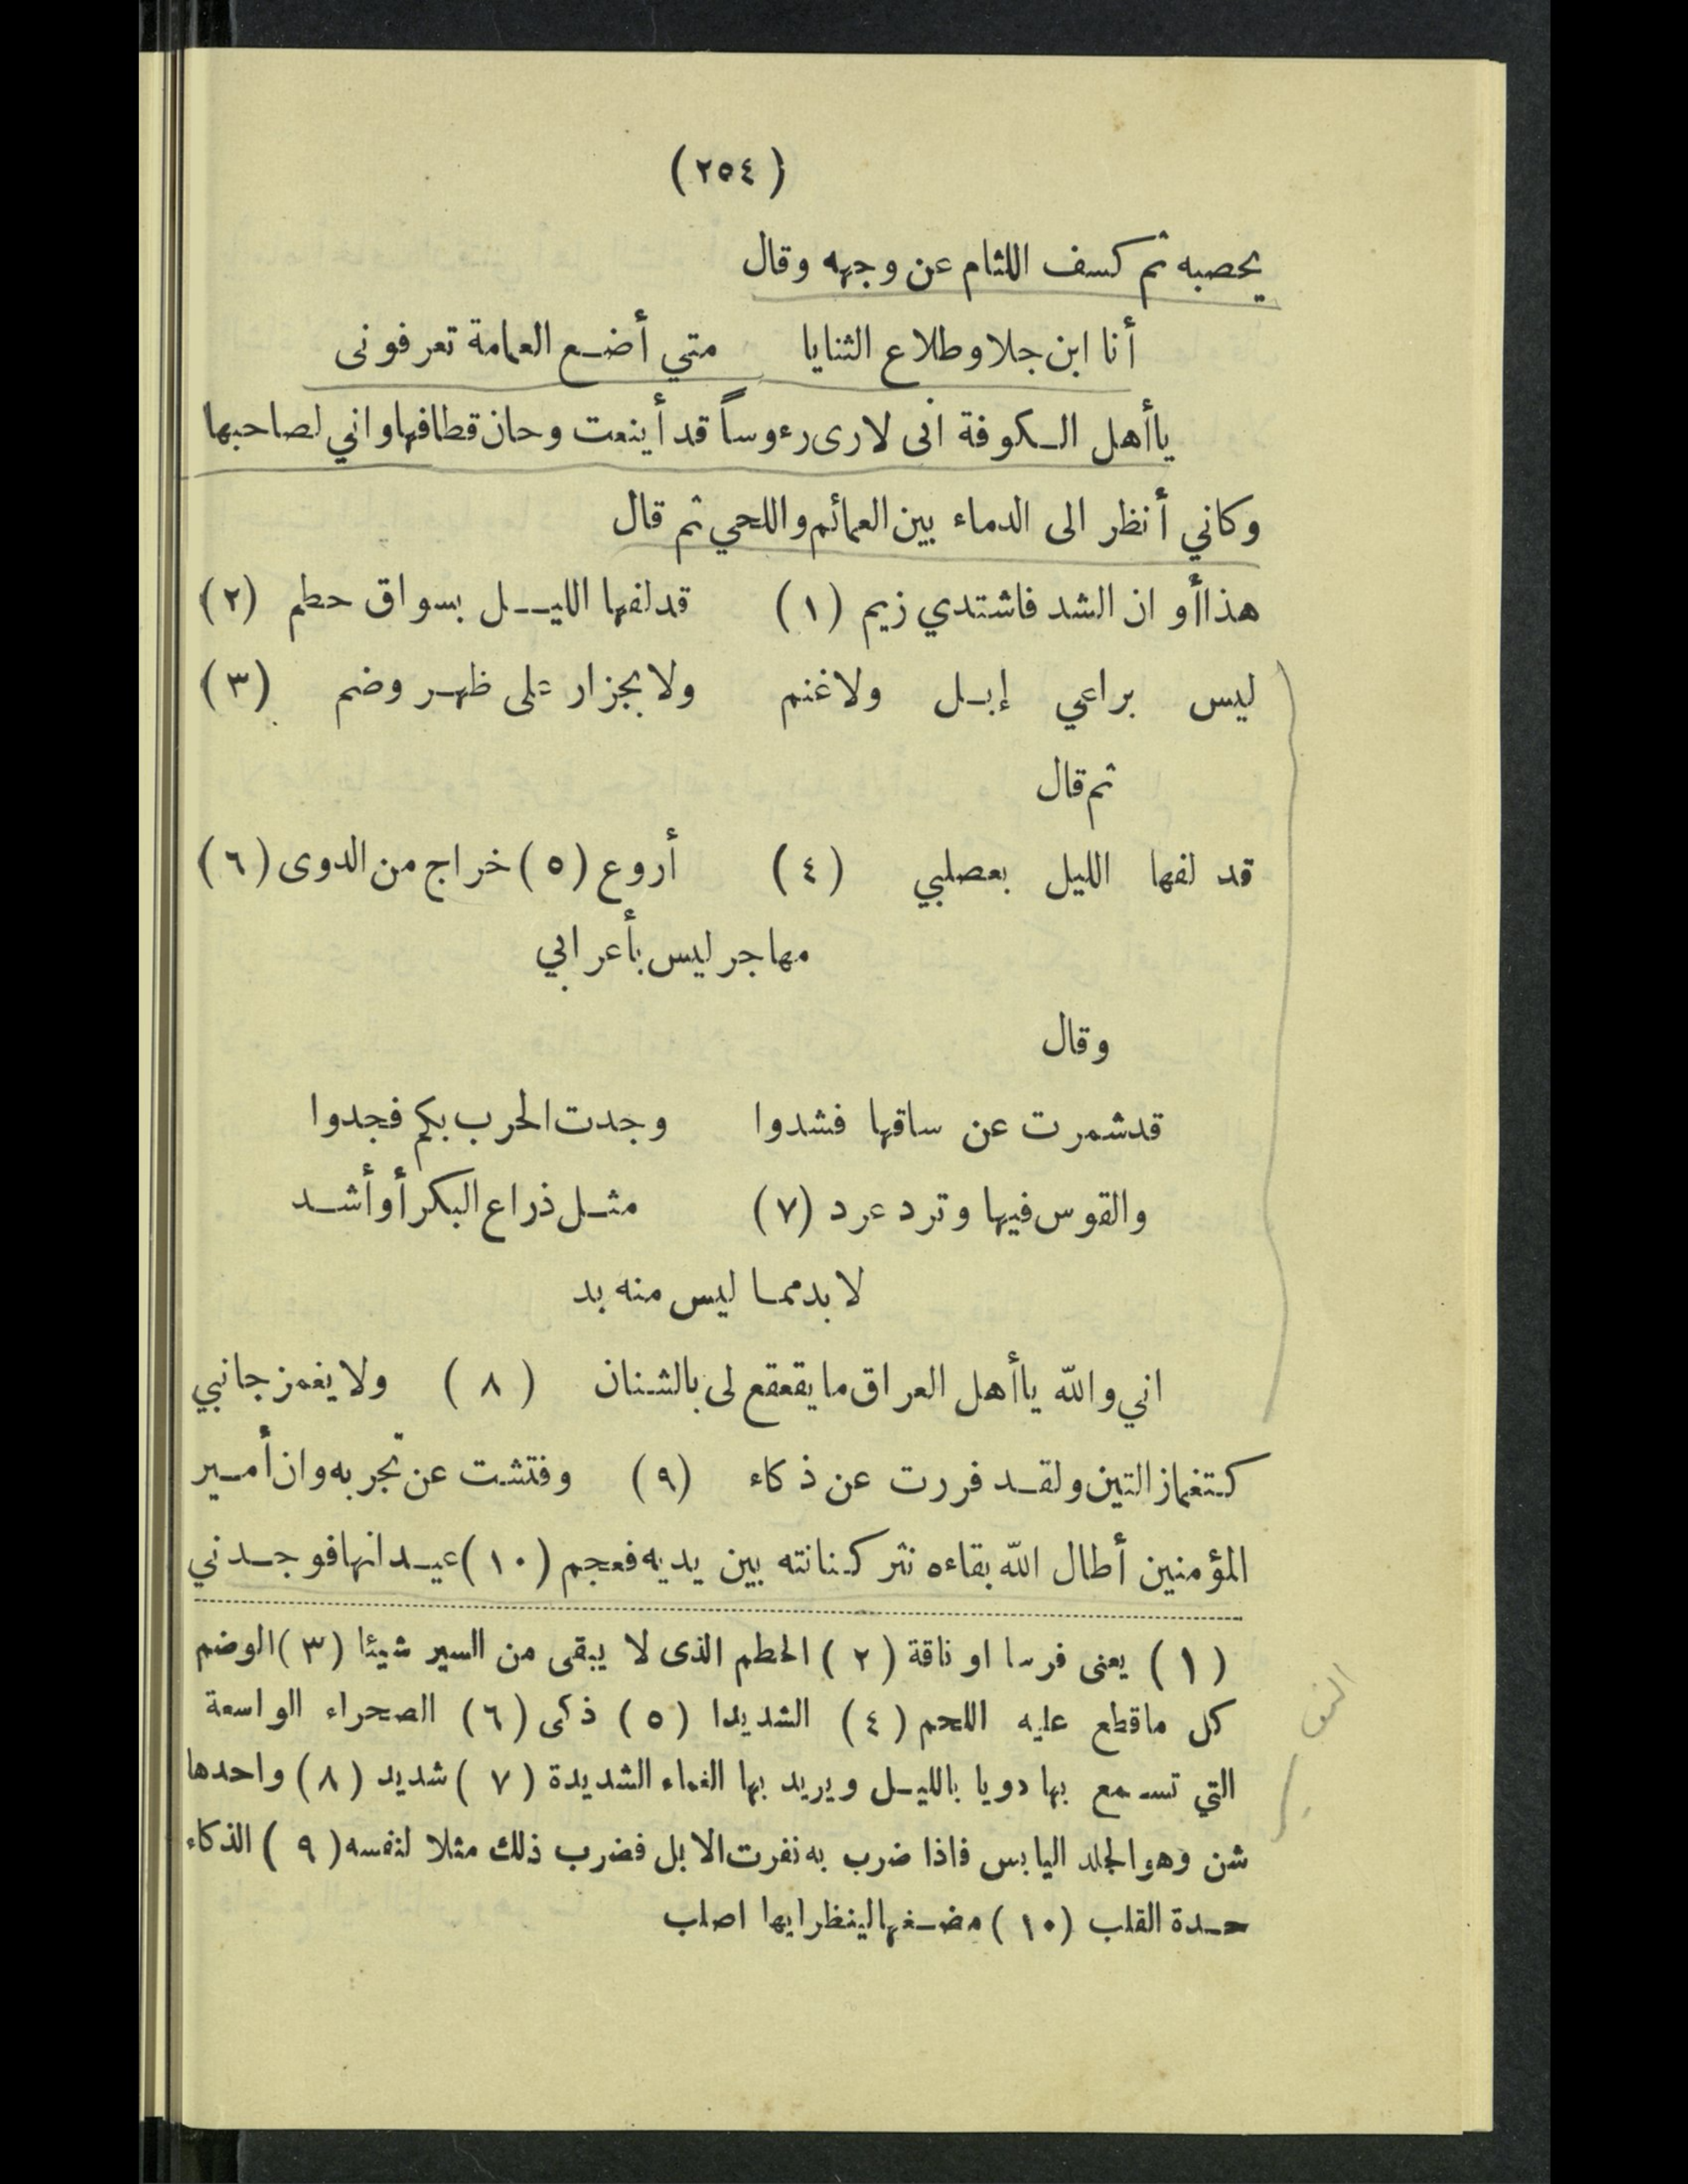 (٢٥٤)
يحصبه ثم كسف اللثام عن وجهه وقال
أنا ابن جلا وطلاع الثنايا متي أضع العمامة تعرفونى
ياأهل الكوفة انى لارى رءوساً قد أينعت وحان قطافها واني لصاحبها
وكاني أنظر الى الدماء بين العمائم واللحي ثم قال
هذا أوان الشد فاشتدي زيم (١) قد لفها الليل بسواق حطم (٢)
ليس براعي إبل ولا غنم ولا بجزار على ظهر وضم (٣)
ثم قال
قد لفها الليل بعصلبي (٤) أروع (٥) خراج من الدوى (٦)
مهاجر ليس بأعرابي
وقال
قد شمرت عن ساقها فشدوا وجدت الحرب بكم فجدوا
والقوس فيها وترد عرد (٧) مثل ذراع البكر أو أشد
لا بد مما ليس منه بد
اني والله ياأهل العراق ما يقعقع لى بالشنان (٨) ولا يغمز جانبي
كتغماز التين ولقد فررت عن ذكاء (٩) وفتشت عن تجربه وان أمير
المؤمنين أطال الله بقاءه نثر كنانته بين يديه فعجم (١٠) عيدانها فوجدني
(١) يعنى فرسا او ناقة (٢) الحطم الذى لا يبقى من السير شيئا (٣) الوضم
كل ماقطع عليه اللحم (٤) الشديدا (٥) ذكى (٦) الصحراء الواسعة
التي تسمع بها دويا بالليل ويريد بها الغماء الشديدة (٧) شديد (٨) واحدها
شن وهو الجلد اليابس فاذا ضرب به نفرت الابل فضرب ذلك مثلا لنفسه (٩) الذكاء
حدة القلب (١٠) مضغها لينظر ايها اصلب